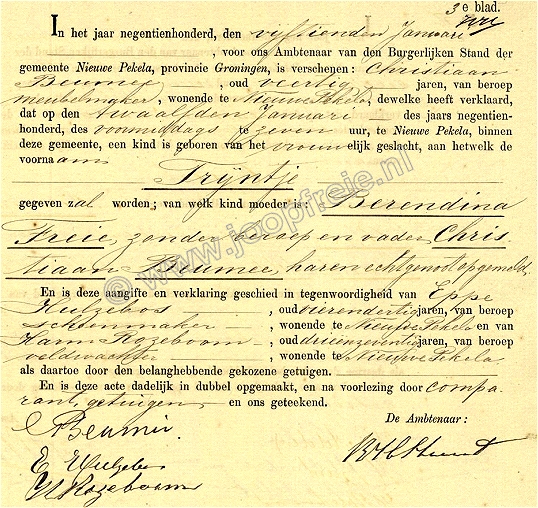 3e blad.
In het jaar negentienhonderd, den vijftienden Januari
, voor ons Ambtenaar van den Burgerlijken Stand der
gemeente Nieuwe Pekela, provincie Groningen, is verschenen: Christiaan
Beumee, oud veertig jaren, van beroep
meubelmaker, wonende te Nieuwe Pekela, dewelke heeft verklaard,
dat op den twaalfden Januari des jaars negentien-
honderd, des voormiddags te zeven uur, te Nieuwe Pekela, binnen
deze gemeente, een kind is geboren van het vrouwelijk geslacht, aan hetwelk de
voornaam
Trijntje
gegeven zal worden; van welk kind moeder is: Berendina
Freie, zonder beroep en vader Chris
tiaan Beumee, haren echtgenoot opgemeld.
En is deze aangifte en verklaring geschied in tegenwoordigheid van Eppe
Hulzebos, oud vierendertig jaren, van beroep
schoenmaker, wonende te Nieuwe Pekela en van
Harm Hozeboom, oud drieënzeventig jaren, van beroep
veldwachter, wonende te Nieuwe Pekela
als daartoe door den belanghebbende gekozene getuigen.
En is deze acte dadelijk in dubbel opgemaakt, en na voorlezing door compa-
rant, getuigen en ons geteekend.
De Ambtenaar:
C Beumee.
E Hulzebos
H Hozeboom
© www.joopfreie.nl